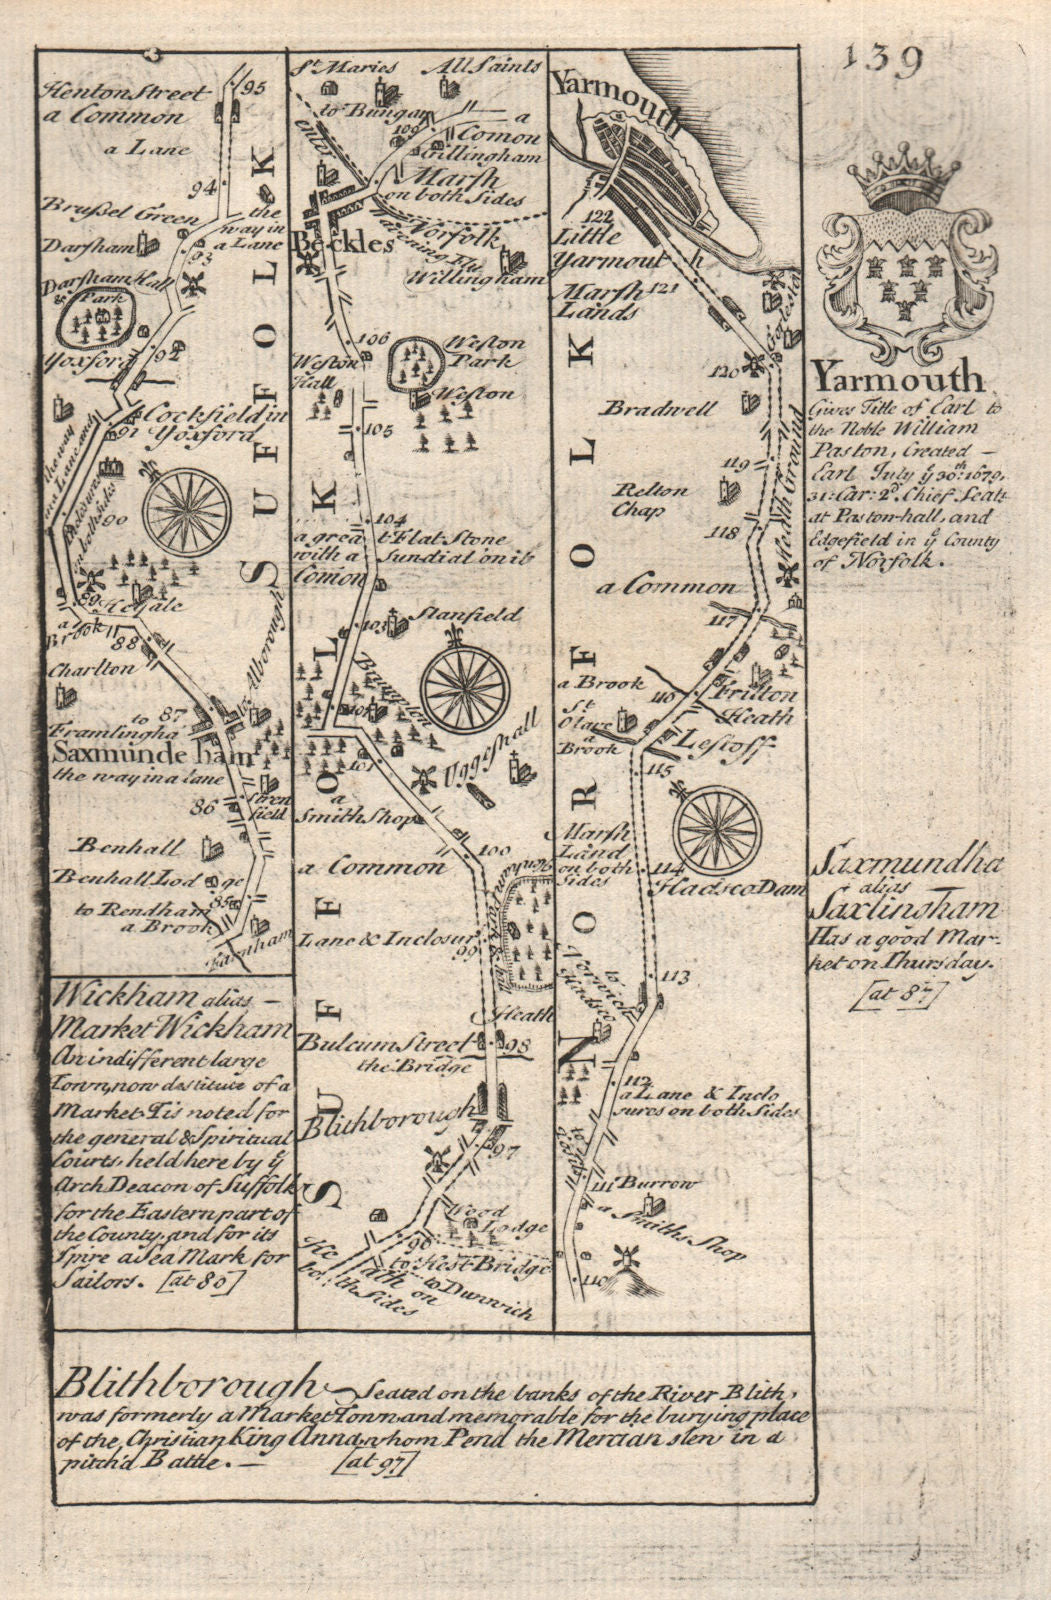 139
Henton Street
a Common
a Lane
95
94
Brussel Green
the
way in
a Lane
Darsham
93
Darsham Hall
&
Park
Yoxford
92
Cockfield in
Yoxford
91
the way
in a Lane and
Inclosures
on both sides
90
89
Kelsale
a
Brook
88
Charlton
to Alborough
to
Framlingha
87
Saxmundeham
the way in a lane
86
Stren
field
Benhall
Benhall Lodge
85
to Rendham
a Brook
Farnham
SUFFOLK
Wickham alias —
Market Wickham
An indifferent large
Town, now destitute of a
Market. Tis noted for
the general & Spiritual
Courts, held here by ye
Arch Deacon of Suffolk
for the Eastern part of
the County, and for its
Spire a Sea Mark for
Sailors. [at 80]
St Maries
All Saints
to Bungay
109
a
Comon
Gillingham
Marsh
on both Sides
enter
Norfolk
Beckles
Willingham
106
Weston
Park
Weston
Hall
Weston
105
104
a great Flat Stone
with a Sundial on it
Comon
Stanfield
103
Brampton
102
101
Uggeshall
a
Smith Shop
100
a Common
Lane & Inclosur
99
Henham Park & Hall
Heath
Bulcum Street
98
the Bridge
Blithborough
97
Wood
Lodge
96
to Hest Bridge
Heath on
both Sides
to Dunwich
SUFFOLK
Yarmouth
122
Little
Yarmouth
121
Marsh
Lands
120
Bradwell
119
Relton
Chap
118
Heath Ground
a Common
117
a Brook
116
Fritton
Heath
St
Olave
a
Brook
Lestoff
115
Marsh
Land
on both
Sides
114
Hadsco Dam
113
to
Norwich
Hadsco
112
a Lane & Inclo
sures on both Sides
111
Burrow
a Smiths Shop
110
NORFOLK
Yarmouth
Gives Title of Earl to
the Noble William
Paston, Created —
Earl July ye 30th 1679,
31: Car: 2d. Chief Seats
at Paston-hall, and
Edgefield in ye County
of Norfolk.
Saxmundha
alias
Saxlingham
Has a good Mar-
ket on Thursday.
[at 87]
Blithborough Seated on the banks of the River Blith,
was formerly a Market Town and memorable for the burying place
of the Christian King Anna, whom Pend the Mercian slew in a
pitch'd Battle. — [at 97]